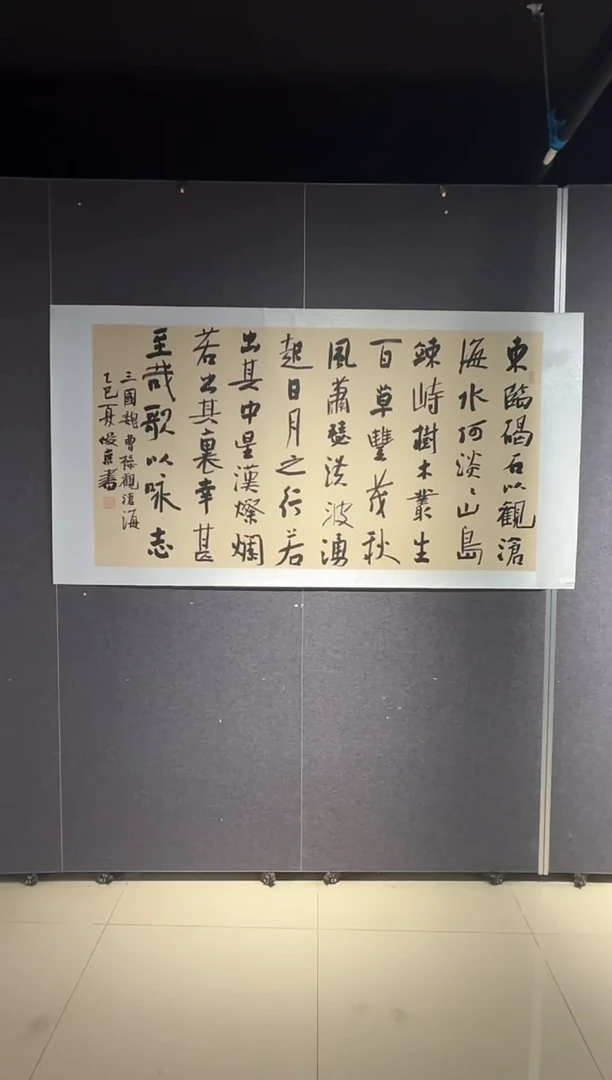 東臨碣石以觀滄
海水何淡〻山島
竦峙樹木叢生
百草豐茂秋
風蕭瑟洪波湧
起日月之行若
出其中星漢燦爛
若出其裏幸甚
至哉歌以咏志
三國魏曹操觀滄海
乙巳夏書